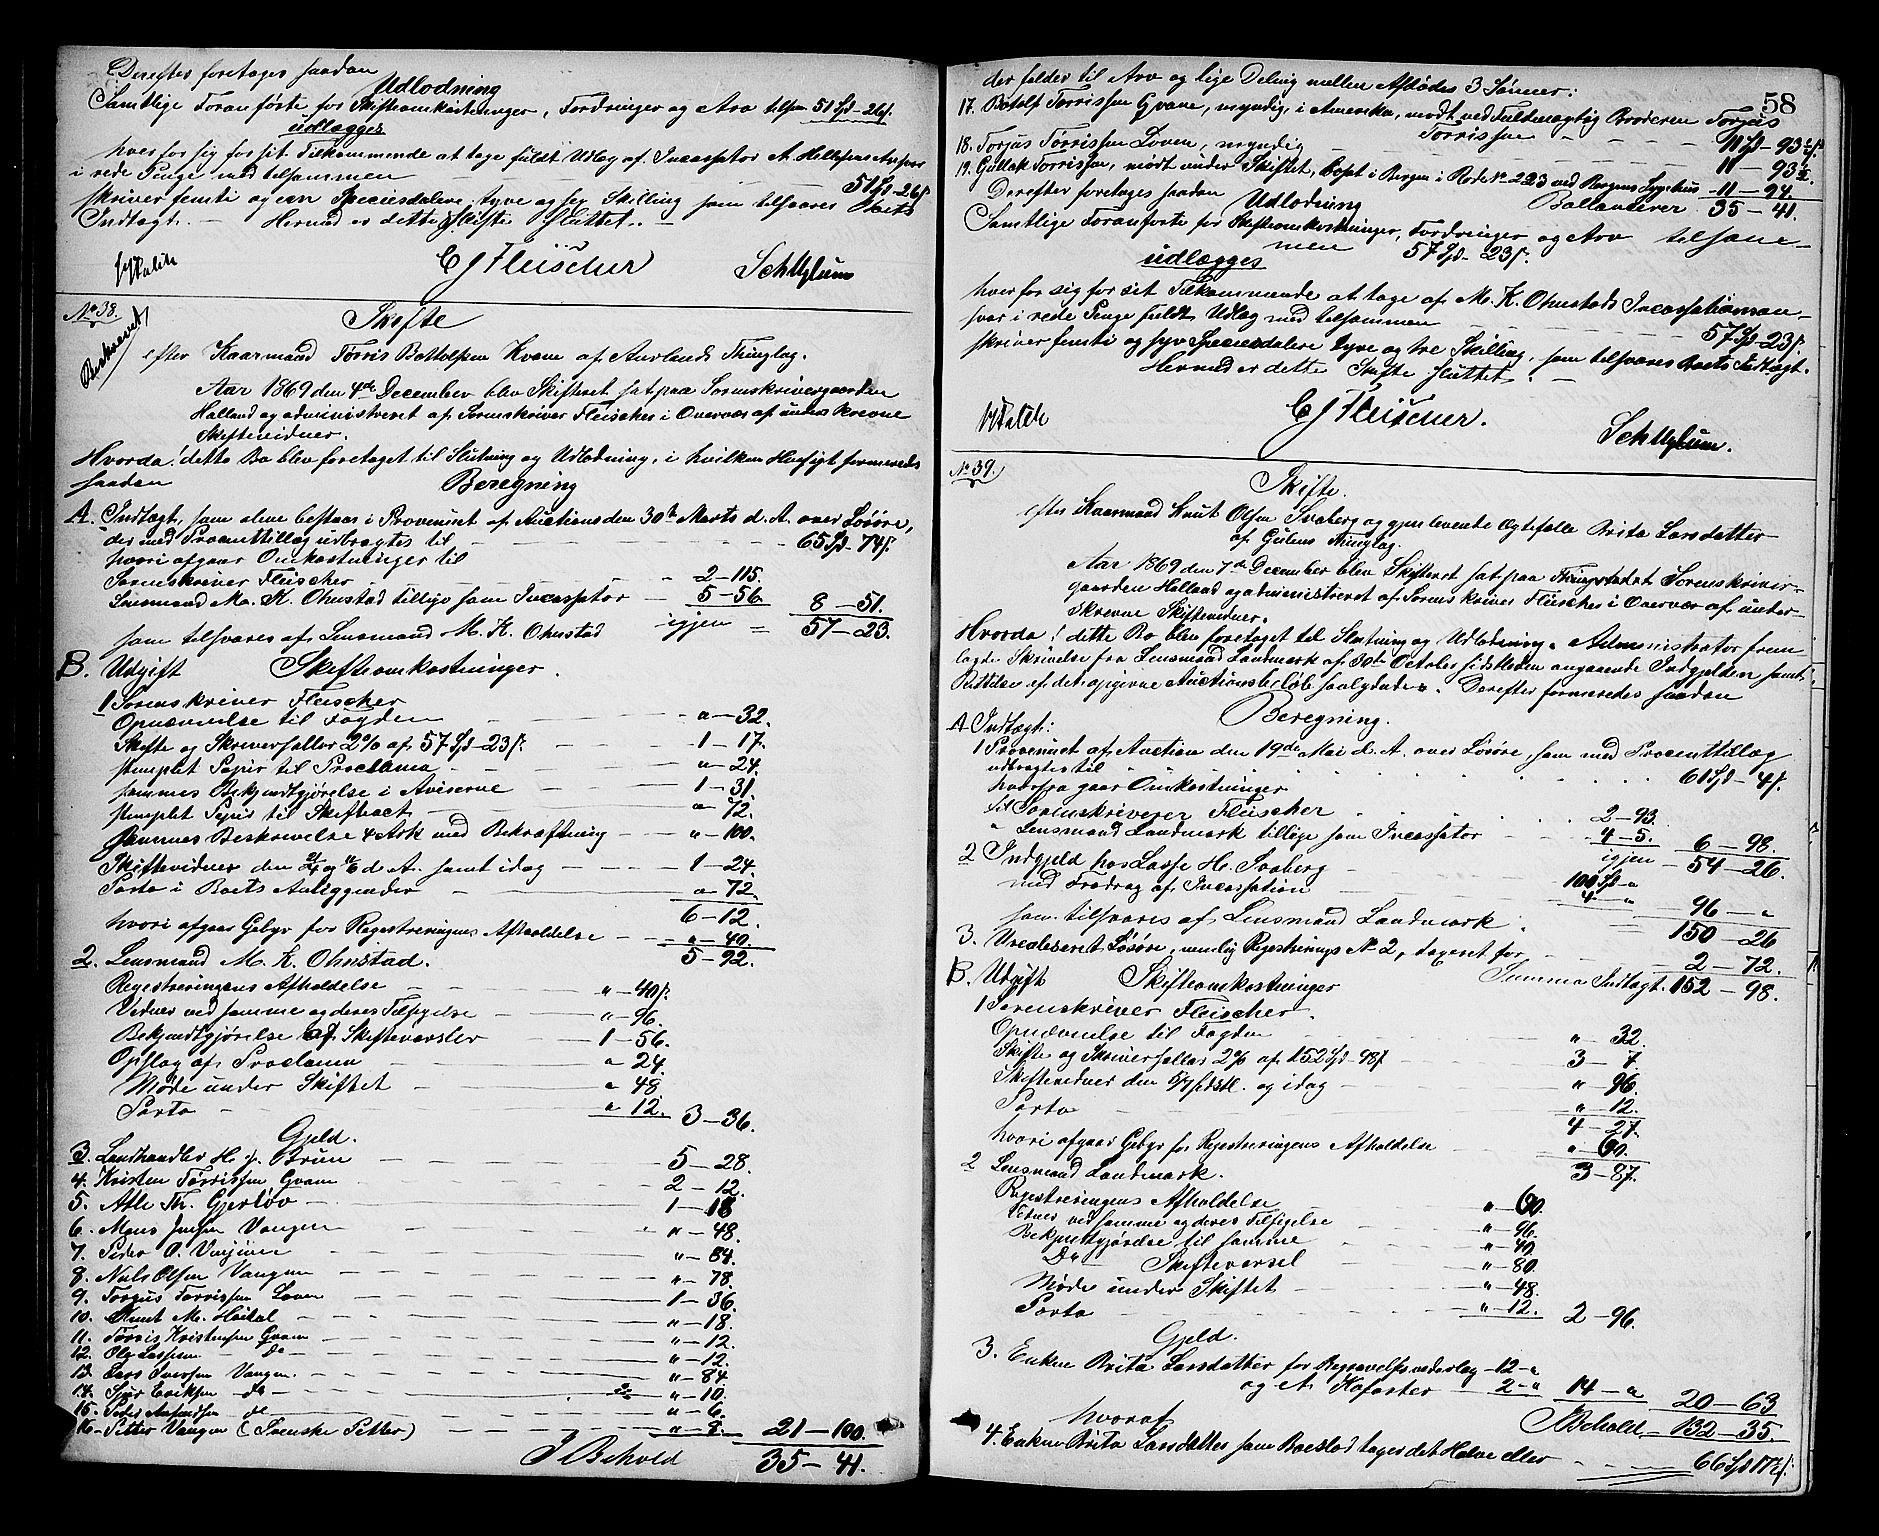 Derefter foretages saadan
Udlodning
Samtlige Foranførte for Skifteomkostninger, Fordringer og Arv tilsm 51 Spd - 26 s.
udlægges
hver for sig for sit Tilkommende at tage fuldt Udlag af Incassator A. Hellesens Ansvar
i rede Penge med tilsammen 51 Spd - 26 s.
skriver femti og een Speciesdalere, tyve og sex Skilling som tilsvares Boets
Indtægt. - Hermed er dette Skifte sluttet. -
CJ Fleischer
No 38.
Beskrevet
Skifte
efter Kaarmand Tørris Bottolfsen Kvam af Aurlands Thinglag.
Aar 1869 den 4de December blev Skifteret sat paa Sorenskrivergaarden
Halland og administreret af Sorenskriver Fleischer i Overvær af underskrevne
Skiftevidner.
Hvorda! dette Bo blev foretaget til Slutning og Udlodning, i hvilken Hensigt formeredes
saadan Beregning
A. Indtægt, som alene bestaar i Provenuet af Auctionsden 30te Marts d. A. over Løsøre,
der med Procenttillæg udbragtes til 65 Spd - 74 s.
hvori afgaar Omkostninger til
Sorenskriver Fleischer 2 - 115.
Lensmand M. K. Ohnstad tillige som Incassator 5 - 56. 8 - 51.
som tilsvares af Lensmand M. K. Ohnstad igjen = 57 - 23.
B. Udgift Skifteomkostninger.
1 Sorenskriver Fleischer
Opnævnelse til Fogden " - 32.
Skifte og Skriversaller 2% af 57 Spd - 23 s. 1 - 17.
stemplet Papir til Proclama " - 24.
sammes Bekjendtgjørelse i Aviserne 1 - 31.
stemplet Papir til Skifteact " 72.
Sammes Beskrivelse 4 Ark med Bekræftning " - 100.
Skiftevidner den og d. A. samt idag 1 - 24.
Porto i Boets Anliggender " - 72
6 - 12.
hvori afgaar Gebyr for Registreringens Afholdelse " - 40.
2. Lensmand M. K. Ohnstad. 5 - 92.
Registreringens Afholdelse " - 40 s.
Vidner ved samme og deres Tilsigelse " - 96.
Bekjendtgjørelse af Skiftevarsler 1 - 56.
Opslag af Proclama " 24.
Møde under Skiftet " 48
Porto " 12. 3 - 36.
Gjeld.
3. Landhandler H. J. Brun 5 - 28.
4. Kristen Tørrissen Qvam 2 - 12.
5. Atle Th. Gjerløv 1 - 18
6. Mons Jensen Vangen " - 48.
7. Peder O. " - 84.
8. Niels Olsen Vangen " - 78.
9. Torgus Tørrissen Loven 1 - 36.
10. Knut M. " - 18.
11. Tørris Kristensen Qvam " - 12.
12. Ole Larssen do " - 12.
13. Lars Iversen Vangen. " - 84
14. Sjur Eriksen do " - 10.
15. Peder do " - 6.
16. Petter Vangen (Svenske Petter) " - 8. 21 - 100.
I Behold 35 - 41.
58
der falder til Arv og lige Deling mellem Afdødes 3 Sønner:
17. Botolf Tørrissen Qvam, myndig, i Amerika, mødt ved Fuldmægtig Broderen Torgus
Tørrissen 11 Spd - 93 s.
18. Torgus Tørrissen Loven, myndig 11 - 93
19. Gullak Tørrissen, mødt under Skiftet, bopt i Bergen i Rode No 223 ved Bergens Sygehus 11 - 94.
Derefter foretages saadan Udlodning 35 - 41.
Samtlige Foranførte for Skifteomkostninger, Fordringer og Arv tilsam-
men 57 Spd - 23 s.
udlægges
hver for sig for sit Tilkommende at tage af M. K. Ohnstads Incassationsan-
svar i rede Penge fuldt Udlag med tilsammen 57 Spd 23 s.
skriver femti og syv Speciesdalere tyve og tre Skilling, som tilsvares Boets Indtægt.
Hermed er dette Skifte sluttet. -
CJ Fleischer.
No 39.
Skifte.
efter Kaarmand Knut Olsen Svaberg og gjenlevende Ægtefælle Brita Larsdatter
af Gulens Thinglag.
Aar 1869 den 7de December blev Skifteret sat paa Sorenskriver-
gaarden Halland og administreret af Sorenskriver Fleischer i Overvær af under-
skrevne Skiftevidner.
Hvorda! dette Bo blev foretaget til Slutning og Udlodning. Administrator frem
lagde Skrivelse fra Lensmand Landmark af 30te October sidstleden angaaende Indgjelden samt
Rettelse af det opgivne Auctionsbeløb saalydende. Derefter formeredes saadan
Beregning.
A Indtægt:
1 Provenuet af Auction den 19de Mai d. A. over Løsøre, som med Procenttillæg
udbragtes til 61 Spd - 4 s.
hvorfra gaar Omkostninger
til Sorenskriver Fleischer 2 - 93.
" Lensmand Landmark tillige som Incassator 4 - 5. 6 - 98.
igjen 54 - 26.
2 Indgjeld hos Lasse H. Svaberg 100 Spd "
med Fradrag af Incassation 4 - " 96 - "
som tilsvares af Lensmand Landmark. 150 - 26
3. Urealiseret Løsøre, nemlig Registrerings No 2, taxeret for 2 - 72.
Summa Indtægt. 152 - 98.
B. Udgift Skifteomkostninger
1 Sorenskriver Fleischer.
Opnævnelse til Fogden " - 32.
Skifte og Skriversaller 2% af 152 Spd - 98 s 3 - 7.
Skiftevidner den sidstl. og idag " 96.
Porto " - 12.
4 - 27.
hvori afgaar Gebyr for Registreringens Afholdelse " - 60.
2 Lensmand Landmark. 3 - 87.
Registreringens Afholdelse " - 60.
Vidner ved samme og deres Tilsigelse " - 96.
Bekjendtgjørelse til samme " - 40.
Do Skiftevarsel " - 80.
Møde under Skiftet " - 48
Porto " - 12. 2 - 96.
Gjeld.
3. Enken Brita Larsdatter for Begravelsesvederlag 12 - "
og et Hofoster 2 - " 14 - " 20 - 63
I Behold 132 - 35
hvoraf
4. Enken Brita Larsdatter som Boeslod tager det Halve eller 66 Spd 17½ s.